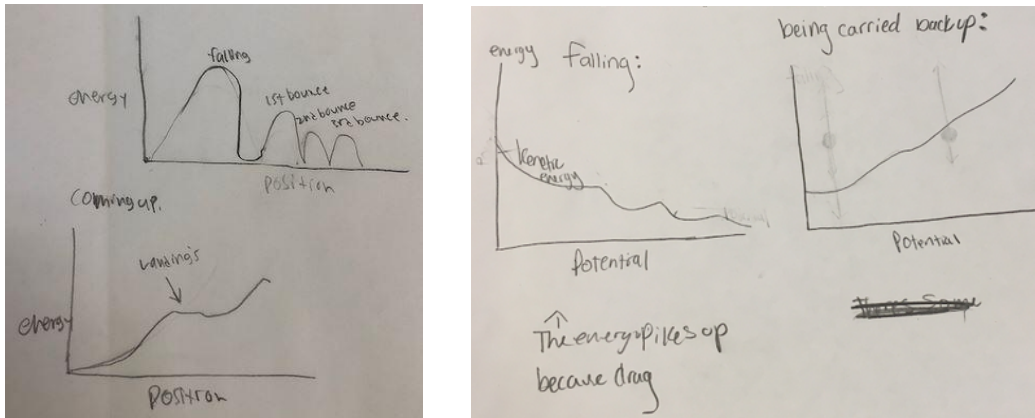 falling
energy
1st bounce
2nd bounce
3rd bounce.
position
Coming up.
Landing's
energy
Position
energy
falling:
Kenetic
energy
Potential
The energy pikes up
becaue drag
being carried back up:
Potential